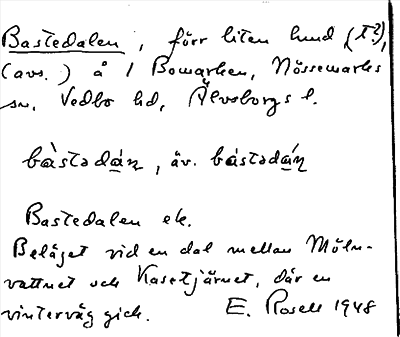 Bastedalen, förr liten lund (t?),
(avs.) å 1 Bowarken, Nössemarks
sn, Vedbo hd, Älvsborgs l.
bàstədán, äv. bástədán
Bastedalen ek.
Beläget vid en dal mellan Möln-
vattnet och Kasetjärnet, där en
vinterväg gick. E. Rosell 1948